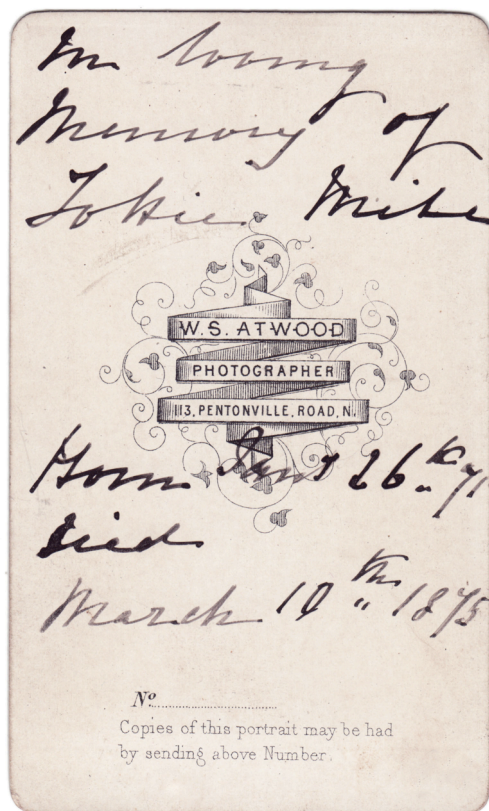 In loving
Memory of
W. S. ATWOOD
PHOTOGRAPHER
113, PENTONVILLE, ROAD, N.
Born 26th 71
Died
March 10th 1875
No
Copies of this portrait may be had
by sending above Number.